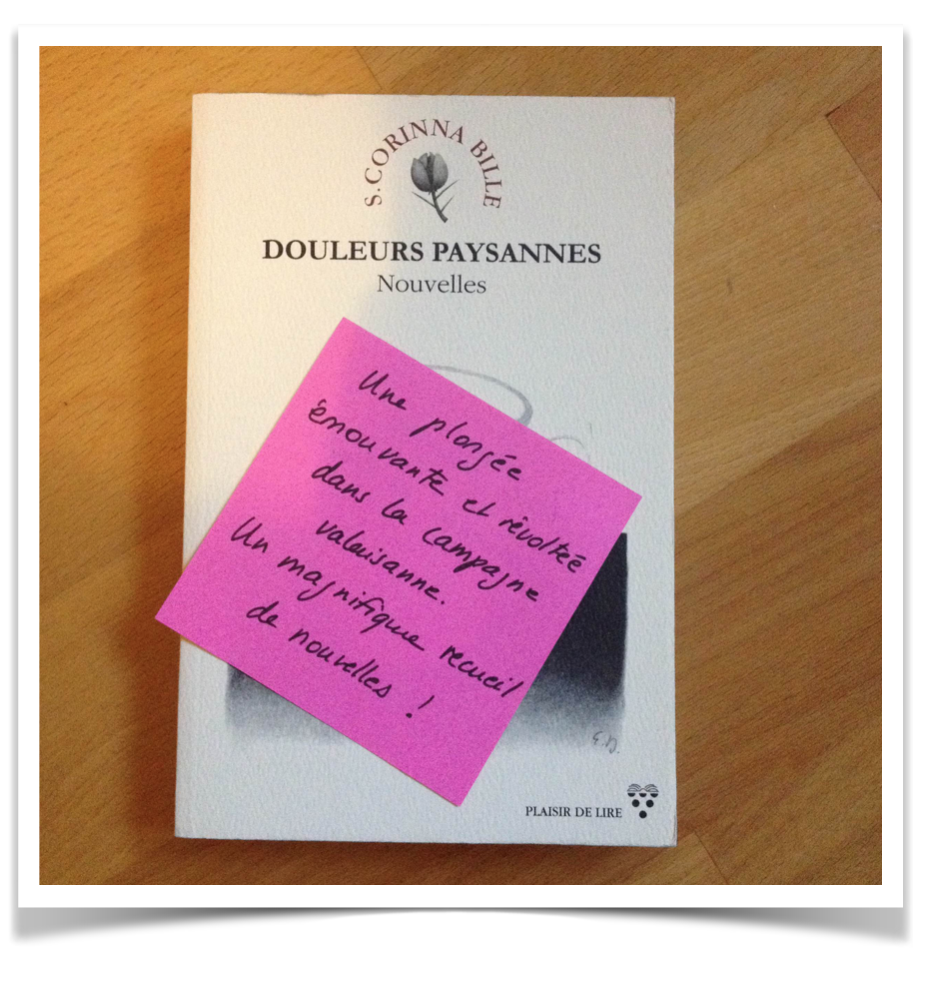 S. CORINNA BILLE
DOULEURS PAYSANNES
Nouvelles
Une plongée
émouvante et révoltée
dans la campagne
valaisanne.
Un magnifique recueil
de nouvelles !
PLAISIR DE LIRE